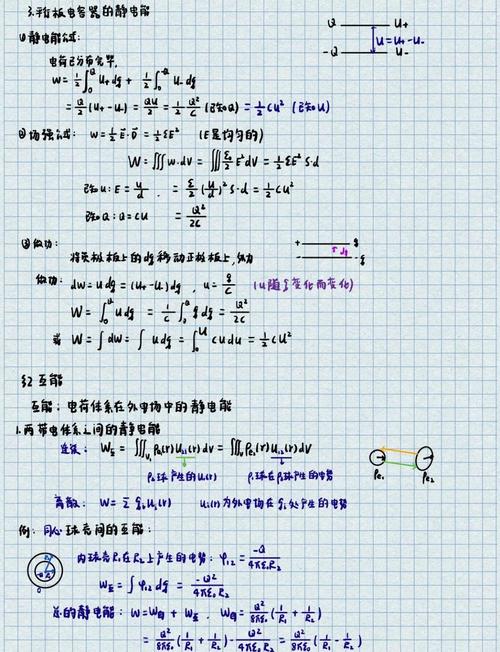 3.平行板电容器的静电能
①静电能公式:
电荷已分布完毕,
W = 1/2 ∫₀^Q U₊dq + 1/2 ∫₀^-Q U₋dq
= Q/2 (U₊-U₋) = QU/2 = 1/2 Q²/C (已知Q) = 1/2 CU² (已知U)
Q U₊
U=U₊-U₋
-Q U₋
②场强公式: w = 1/2 E⃗·D⃗ = 1/2 εE² (E是均匀的)
W = ∭w·dV = ∭ε/2 E²dV = 1/2 εE²S·d
已知U: E = U/d , = ε/2 (U/d)² S·d = 1/2 CU²
已知Q: Q=CU = Q²/2C
③做功:
将负极板上的dq移动正极板上,外力
做功: dW = Udq = (U₊-U₋)dq , U = q/C (U随q变化而变化)
+ q
↑dq
- -q
W = ∫₀^Q Udq = 1/C ∫₀^Q qdq = Q²/2C
或 W = ∫dW = ∫Udq = ∫₀^U CUdU = 1/2 CU²
§2 互能
互能: 电荷体系在外电场中的静电能
1.两带电体系之间的静电能
连续: W互 = ∭V₁ ρe₁(r)U₂₁(r)dV = ∭V₂ ρe₂(r)U₁₂(r)dV
ρe₁ ρe₂
离散: W = Σ qᵢUᵢ(r) Uᵢ(r)为外电场在qᵢ处产生的电势
例: 同心球壳间的互能:
内球壳R₁在R₂上产生的电势: φ₁₂ = -Q/4πε₀R₂
W互 = ∫φ₁₂dq = -Q²/4πε₀R₂
总的静电能: W = W自 + W互 , W自 = Q²/8πε₀ (1/R₁ + 1/R₂)
= Q²/8πε₀ (1/R₁ + 1/R₂) - Q²/4πε₀R₂ = Q²/8πε₀ (1/R₁ - 1/R₂)